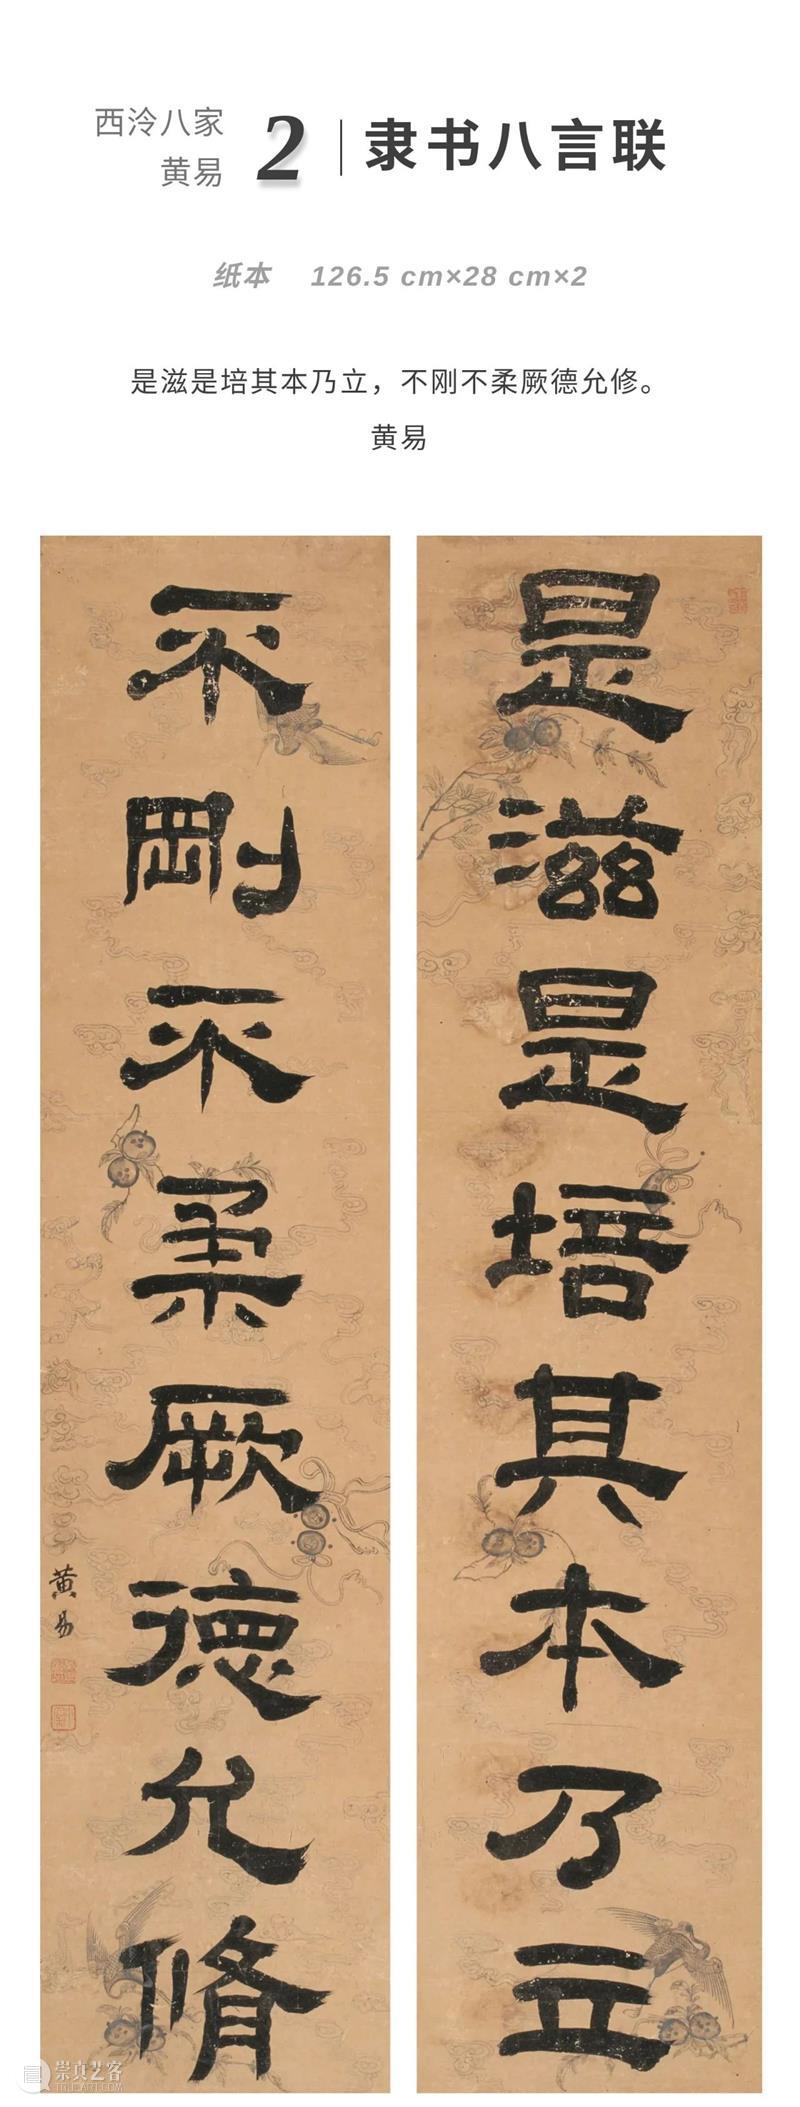 西泠八家
黄易
2
隶书八言联
纸本 126.5 cm×28 cm×2
是滋是培其本乃立，不刚不柔厥德允修。
黄易
是滋是培其本乃立
不剛不柔厥德允脩
黄易
崇真艺客